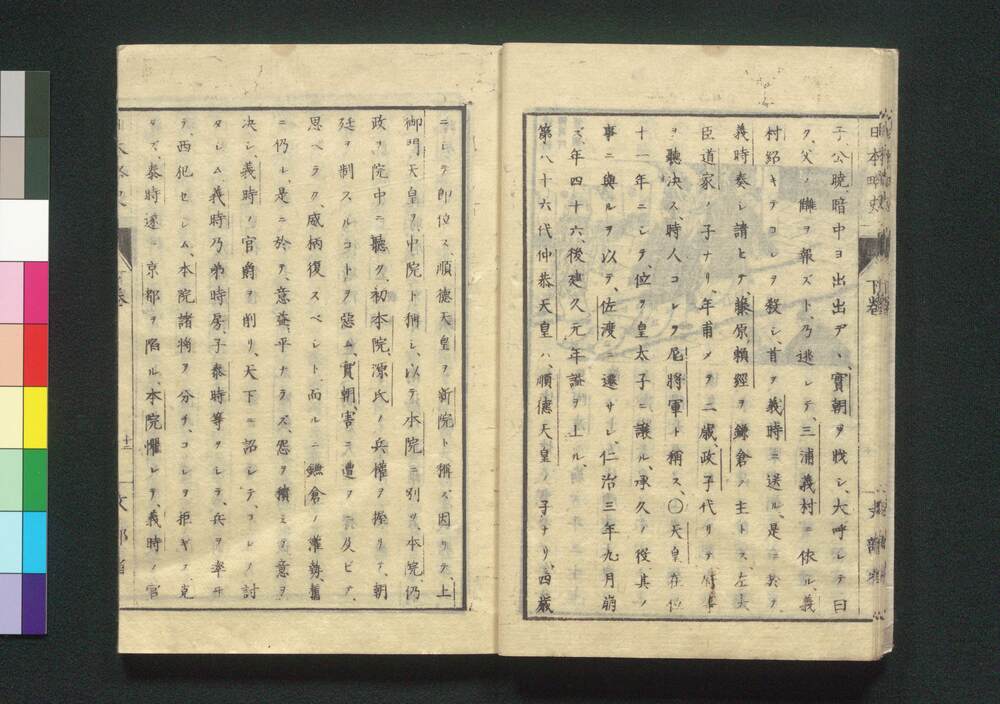 日本略史 下巻
子、公暁、暗中ヨ出出デ、實朝ヲ戕シ、大呼シテ曰
ク、父ノ讎ヲ報ズト、乃逃レテ、三浦義村ニ依ル、義
村紿キテコレヲ殺シ、首ヲ義時ニ送ル、是ニ於テ、
義時奏シ請ヒテ、藤原賴經ヲ鎌倉ノ主トス、左大
臣道家ノ子ナリ、年甫メテ二歳、政子代リテ府事
ヲ聽決ス、時人コレヲ尼將軍ト稱ス、〇天皇在位
十一年ニシテ、位ヲ皇太子ニ譲ル、承久ノ役、其ノ
事ニ與ルヲ以テ、佐渡ニ遷サレ、仁治三年九月崩
ズ、年四十六、後建久元年謚ヲ上ル、
第八十六代仲恭天皇ハ、順德天皇ノ子ナリ、四歳
ニシテ即位ス、順德天皇ヲ新院ト稱ズ、因リテ、上
御門天皇ヲ、中院ト稱シ、以テ本院ニ別ツ、本院、仍
政ヲ院中ニ聽ク、初本院、源氏ノ兵權ヲ握リテ、朝
廷ヲ制スルコトヲ惡ム、實朝、害ニ遭フニ及ビテ、
思ベラク、威柄復スベシト、而ルニ鎌倉ノ權勢、舊
ニ仍ル、是ニ於テ、意益平ナラズ、怨ヲ積ミテ意ヲ
决シ、義時ノ官爵ヲ削リ、天下ニ詔シテ、コレヲ討
タシム、義時乃弟時房、子泰時等ヲシテ、兵ヲ率井
テ、西犯セシム、本院諸將ヲ分チ、コレヲ拒ギテ克
タズ、泰時遂ニ京都ヲ陷ル、本院懼レテ、義時ノ官
十二